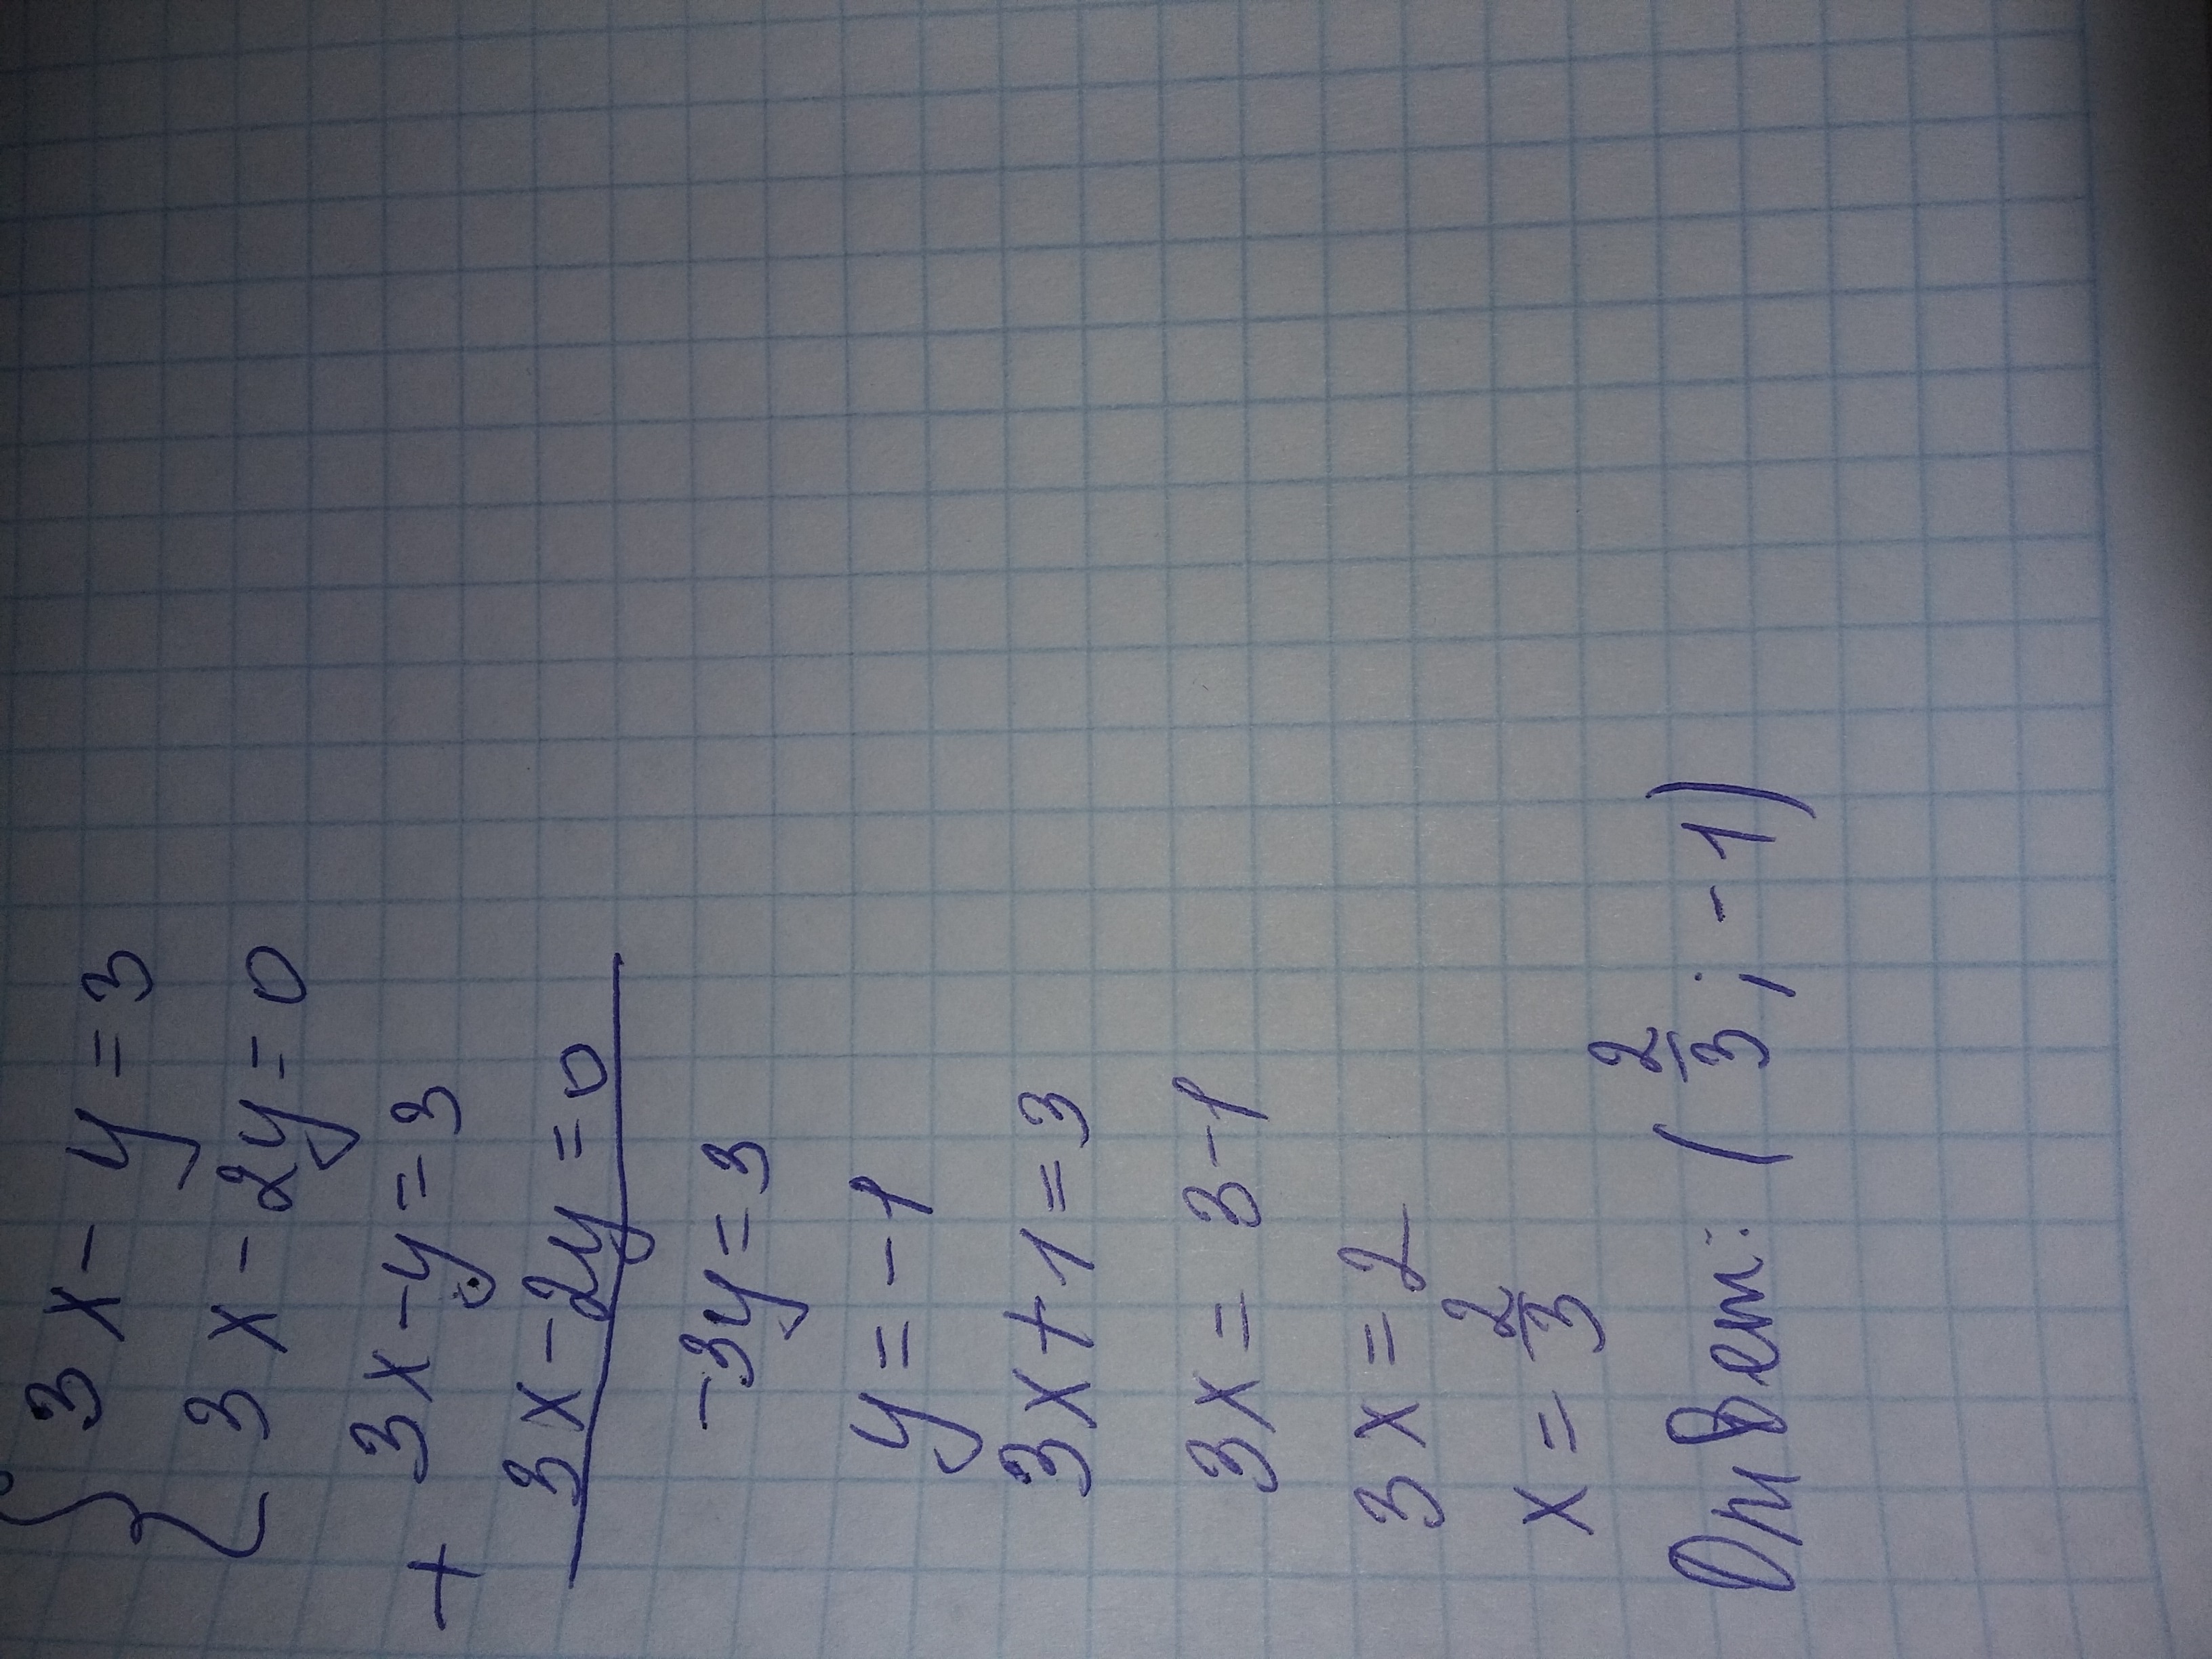 { 3x - y = 3
3x - 2y = 0
+ 3x - y = 3
3x - 2y = 0
-3y = 3
y = -1
3x + 1 = 3
3x = 3 - 1
3x = 2
x = 2/3
Ответ: (2/3; -1)